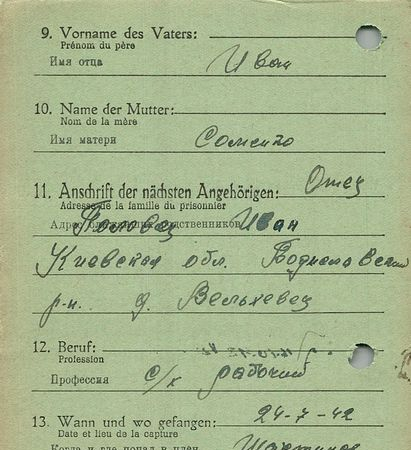 9. Vorname des Vaters:
Prénom du père
Имя отца Иван
10. Name der Mutter:
Nom de la mère
Имя матери Соменко
11. Anschrift der nächsten Angehörigen: Отец
Adresse de la famille du prisonnier
Адрес ближайших родственников Половец Иван
Киевская обл. Богуславский
р-н. д.
12. Beruf:
Profession
Профессия с/х рабочий
13. Wann und wo gefangen: 24-7-42
Date et lieu de la capture
Когда и где попал в плен